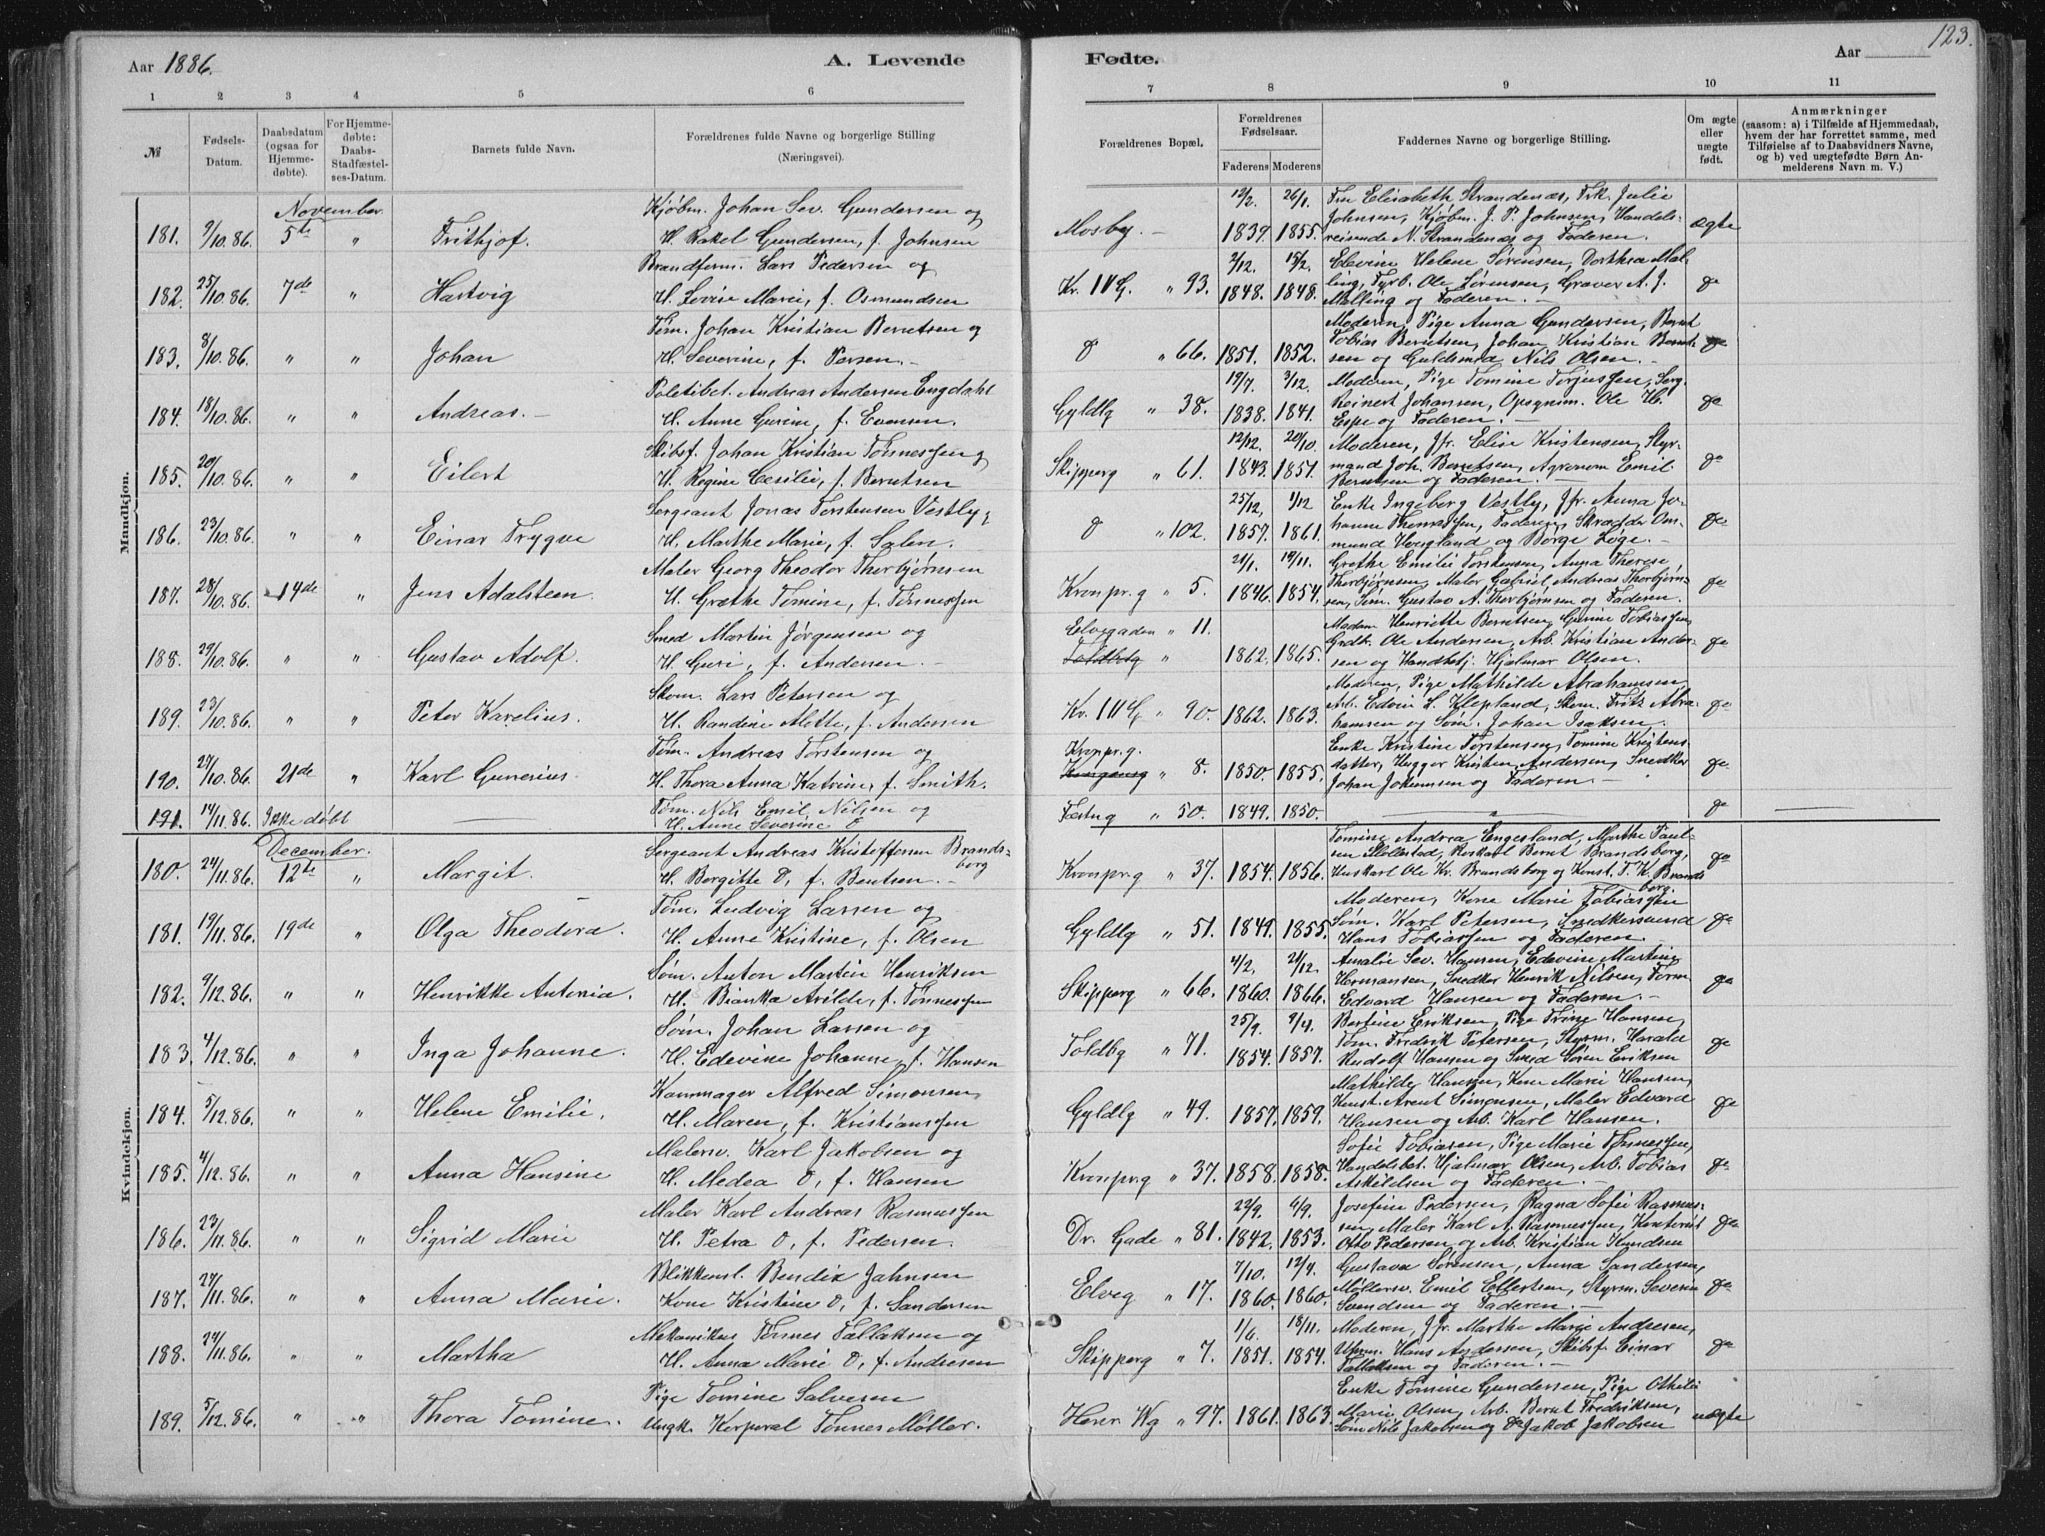 Aar 1886.
A. Levende
Fødte.
Aar
123.
1 2 3 4 5 6 7 8 9 10 11
№
Fødsels-Datum.
Daabsdatum (ogsaa for Hjemmedøbte).
For Hjemmedøbte: Daabs-Stadfæstelses-Datum.
Barnets fulde Navn.
Forældrenes fulde Navne og borgerlige Stilling (Næringsvei).
Forældrenes Bopæl.
Forældrenes Fødselsaar.
Faderens Moderens
Faddernes Navne og borgerlige Stilling.
Om ægte eller uægte født.
Anmærkninger
(saasom: a) i Tilfælde af Hjemmedaab, hvem der har forrettet samme, med Tilføielse af to Daabsvidners Navne, og b) ved uægtefødte Børn Anmelderens Navn m. V.)
Mandkjøn.
November
181. 9/10.86. 5te " Frithjof. Kjøbm. Johan Sev. Gundersen og
H. Rakel Gundersen, f. Johnsen
Mosby. 12/2. 1839. 26/1. 1855. Fru Elisabeth Strandenæs, Frk. Julie
Johnsen, Kjøbm. J. P. Johnsen, Handels-
reisende N. Strandenæs og Faderen. ægte
182. 25/10.86. 7de " Hartvig Brandform. Lars Pedersen og
H. Lovise Marie, f. Osmundsen
Kr. IV G. " 93. 2/12. 1848. 15/2. 1848. Elevine Helene Sørensen, Dorthea Mal-
ling, Fyrb. Ole Sørensen, Graver A. J.
Malling og Faderen. do
183. 8/10.86. " " Johan Tøm. Johan Kristian Berntsen og
H. Severine, f. Persen.
do " 66. 1851. 1852. Moderen, Pige Anna Gundersen, Bernt
Tobias Berntsen, Johan Kristian Bernt-
sen og Guldsmed Nils Olsen. do
184. 18/10.86. " " Andreas. Politibet. Andreas Andersen Engdahl
H. Anne Gurine, f. Evensen.
Gyldlg " 38. 19/7. 1838. 3/12. 1841. Moderen, Pige Tomine Torjussen, Serg.
Reinert Johansen, Opsynsm. Ole H.
Espe og Faderen. do
185. 20/10.86. " " Eilert Skibsf. Johan Kristian Tønnessen og
H. Regine Cecilie, f. Berntsen
Skipperg " 61. 12/12. 1843. 20/10 1851. Moderen, Jfr. Elise Kristensen, Styr-
mand Joh. Berntsen, Agronom Emil
Berntsen og Faderen. do
186. 23/10.86. " " Einar Trygve Sergeant Jonas Torstensen Vestly og
H. Marthe Marie, f. Salen.
do " 102. 25/12. 1857. 1/12 1861. Enke Ingeborg Vestly, Jfr. Anna Jo-
hanne Thomassen, Faderen, Skrædder Om-
mund Hougland og Børge Løge. do
187. 28/10.86. 14de " Jens Adalsteen Maler Georg Theodor Thorbjørnsen
H. Grethe Tomine, f. Tønnessen
Kronpr.g " 5. 21/1. 1846. 19/11. 1854. Grethe Emilie Torstensen, Anna Therese
Thorbjørnsen, Maler Gabriel Andreas Thorbjørn-
sen, Søm. Gustav A. Thorbjørnsen og Faderen. do
188. 29/10.86. " " Gustav Adolf. Smed Martin Jørgensen og
H. Guri, f. Andersen.
Elvegaden " 11.
Toldbodg " 1862. 1865. Madam Henriette Berntsen, Gurine Tobiassen,
Grdbr. Ole Andersen, Arb. Kristian Ander-
sen og Handtbtj. Hjalmar Olsen. do
189. 23/10.86. " " Peter Karelius. Skom. Lars Petersen og
H. Randine Alette, f. Andersen
Kr. IV G " 90. 1862. 1863. Moderen, Pige Mathilde Abrahamsen,
Arb. Edvin L. Klepland, Skom. Fritz Abra-
hamsen og Søm. Johan Isaksen. do
190. 27/10.86. 21de " Karl Gunerius. Tøm. Andreas Torstensen og
H. Thora Anna Katrine, f. Smith.
Kronpr.g. " 8. 1850. 1855. Enke Kristine Torstensen, Tomine Kristens-
datter, Hugger Kristen Andersen, Snedker
Johan Jokumsen og Faderen. do
191. 14/11.86. Ikke døbt Tøm. Nils Emil Nilsen og
H. Anne Severine do
Fæstng " 50. 1849. 1850. " do
Kvindekjøn.
December.
180. 24/11.86. 12te " Margit. Sergeant Andreas Kristoffersen Brands-
borg
H. Bergitte do, f. Bentsen.
Kronpr.g " 37. 1854. 1856. Tomine Andrea Engesland, Marthe Paul-
sen Møllestad, Roskarl Bernt Brandsborg,
Huskarl Ole Kr. Brandsborg og Konst. T. K. Brands-
borg. do
181. 19/11.86. 19de " Olga Theodora. Tøm. Ludvig Larsen og
H. Anne Kristine, f. Olsen
Gyldlg " 51. 1849. 1855. Moderen, Kone Marie Tobiassen
Søm. Karl Petersen, Snedkersvend
Hans Tobiassen og Faderen. do
182. 9/12.86. " " Henrikke Antonia. Søm. Anton Martin Henriksen
H. Bianka Arilde, f. Tønnessen
Skipperg " 66. 4/2. 1860. 21/12. 1866. Amalie Sev. Hansen, Edevine Martine
Hermansen, Snedker Henrik Nilsen, Tøm.
Edvard Hansen og Faderen. do
183. 4/12.86. " " Inga Johanne. Søm. Johan Larsen og
H. Edevine Johanne, f. Hansen
Toldbg " 71. 25/9. 1854. 9/4. 1857. Bertine Eriksen, Pige Trine Hansen,
Tøm. Fredrik Petersen, Styrm. Harald
Rudolf Hansen og Smed Søren Eriksen do
184. 5/12.86. " " Helene Emilie. Kammager Alfred Simonsen,
H. Maren, f. Kristianssen
Gyldlg " 49. 1857. 1859. Mathilde Hansen, Kone Marie Hansen,
Konst. Arent Simonsen, Maler Edvard
Hansen og Arb. Karl Hansen. do
185. 4/12.86. " " Anna Hansine Malersv. Karl Jakobsen og
H. Medea do, f. Hansen
Kronpr.g " 37. 1858. 1858. Sofie Tobiasen, Pige Marie Tønnessen,
Handelsbet. Hjalmar Olsen, Arb. Tobias
Askildsen og Faderen. do
186. 23/11.86. " " Sigrid Marie Maler Karl Andreas Rasmussen
H. Petra do, f. Pedersen.
Dr. Gade " 81. 22/9. 1842. 6/9. 1853. Josefine Pedersen, Ragna Sofie Rasmus-
sen, Maler Karl A. Rasmussen, Kontorist
Otto Pedersen og Arb. Kristian Knudsen do
187. 27/11.86. " " Anna Marie. Blikkensl. Bendix Jahnsen
Kone Kristine do, f. Sandersen
Elveg " 17. 7/10. 1860. 12/4. 1860. Gustava Sørensen, Anna Sandersen,
Møllersv. Emil Ellertsen, Styrm. Severin
Svendsen og Faderen. do
188. 24/11.86. " " Martha Mekanikus Tønnes Tallaksen og
H. Anna Marie do, f. Andresen
Skipperg " 7. 1/6. 1851. 18/11. 1854. Moderen, Jfr. Marthe Marie Andresen,
Uhrm. Hans Andersen, Skibsf. Einar
Tallaksen og Faderen. do
189. 5/12.86. " " Thora Tomine. Pige Tomine Salvesen
Ungk. Korporal Tønnes Møller.
Henr Wg " 97. 1861. 1863. Enke Tomine Gundersen, Pige Othilie
Marie Olsen, Arb. Bernt Fredriksen,
Søm Nils Jakobsen og do Jakob Jakobsen uægte